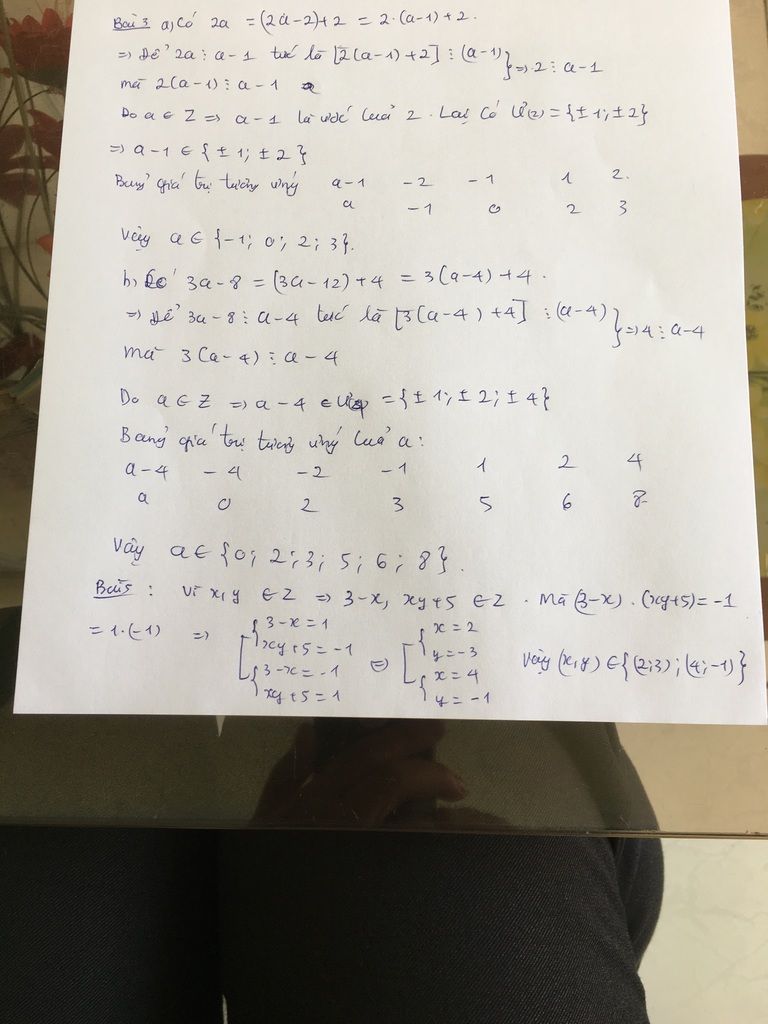 Bài 3 a) Có 2a = (2a-2)+2 = 2·(a-1)+2.
=> Để 2a ⋮ a-1 tức là [2(a-1)+2] ⋮ (a-1) } => 2 ⋮ a-1
mà 2(a-1) ⋮ a-1
Do a ∈ Z => a-1 là ước của 2. Lại có Ư(2) = {±1; ±2}
=> a-1 ∈ {±1; ±2}
Bảng giá trị tương ứng a-1 -2 -1 1 2.
a -1 0 2 3
Vậy a ∈ {-1; 0; 2; 3}.
b, Có 3a-8 = (3a-12)+4 = 3(a-4)+4.
=> Để 3a-8 ⋮ a-4 tức là [3(a-4)+4] ⋮ (a-4) } => 4 ⋮ a-4
mà 3(a-4) ⋮ a-4
Do a ∈ Z => a-4 ∈ = {±1; ±2; ±4}
Bảng giá trị tương ứng của a:
a-4 -4 -2 -1 1 2 4
a 0 2 3 5 6 8
Vậy a ∈ {0; 2; 3; 5; 6; 8}.
Bài 5: Vì x,y ∈ Z => 3-x, xy+5 ∈ Z. Mà (3-x).(xy+5)=-1
= 1·(-1) => [ { 3-x=1 xy+5=-1 { 3-x=-1 xy+5=1 <=> [ { x=2 y=-3 { x=4 y=-1 Vậy (x,y) ∈ {(2;3);(4;-1)}